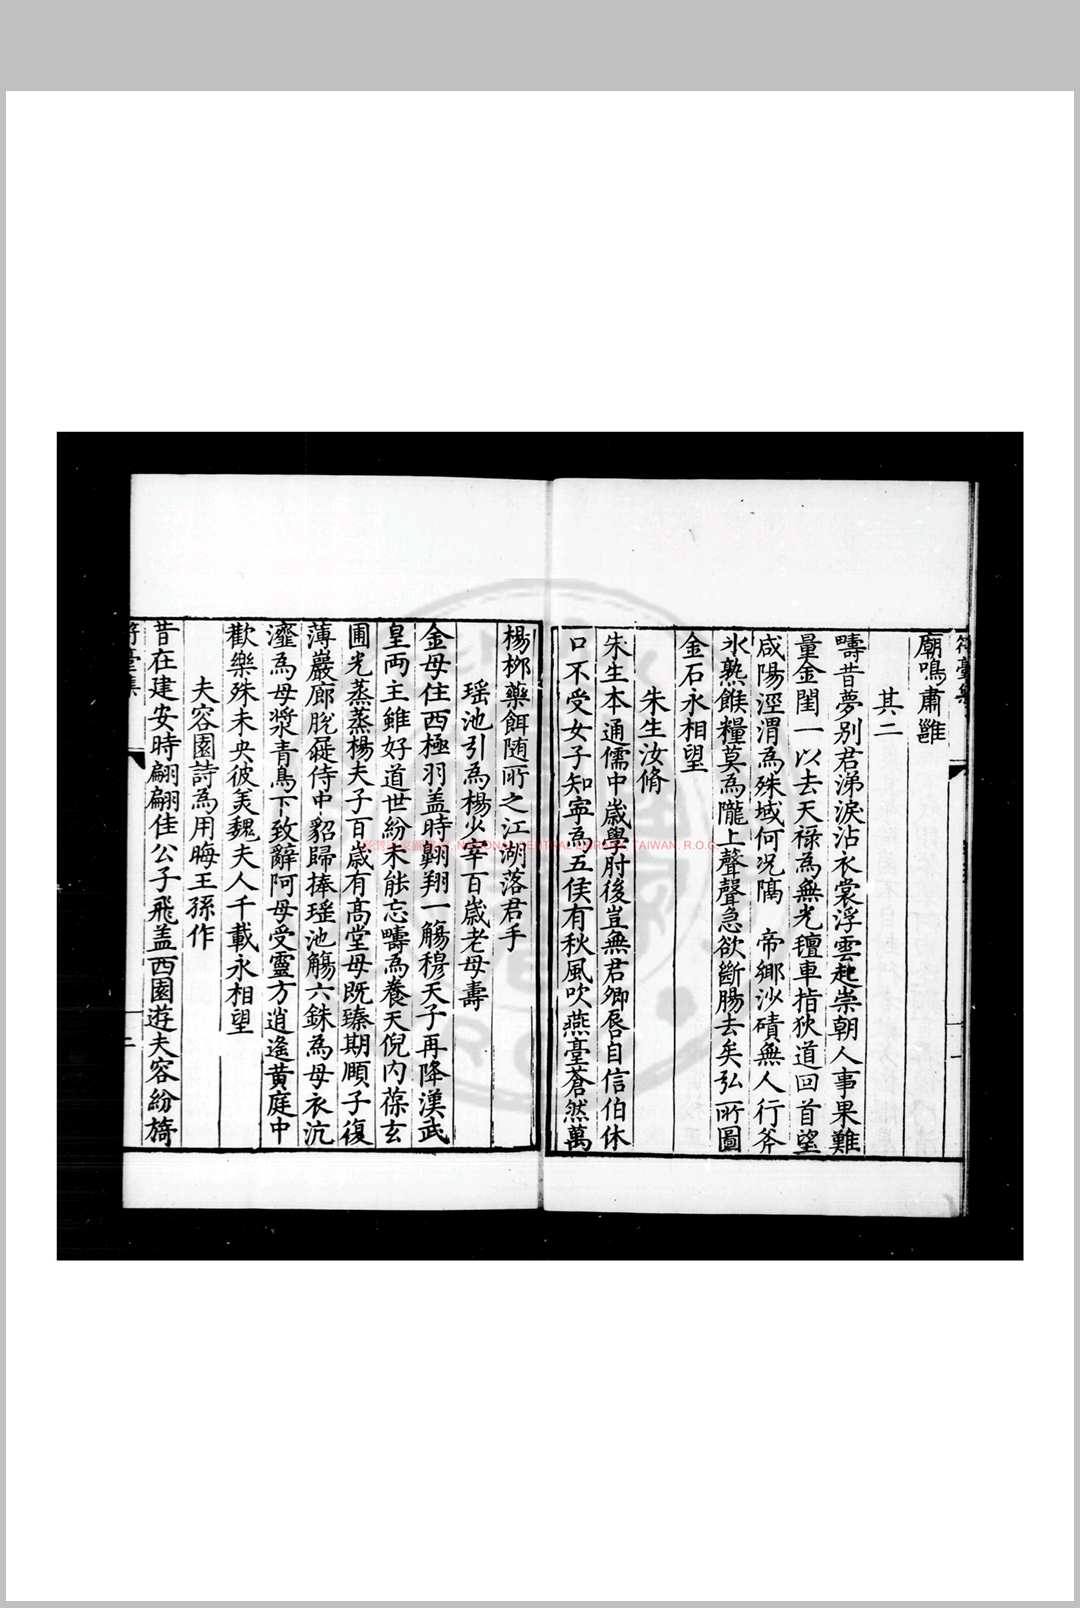 廟鳴肅雝
其二
疇昔夢別君涕淚沾衣裳浮雲起崇朝人事果難
量金閨一以去天祿為無光氊車指狄道回首望
咸陽涇渭為殊域何况隔 帝鄉沙磧無人行斧
氷熟餱糧莫為隴上聲聲急欲斷腸去矣弘所圖
金石永相望
朱生汝脩
朱生本通儒中歲學肘後豈無君卿唇自信伯休
口不受女子知寧為五侯有秋風吹燕臺蒼然萬
楊栁藥餌随所之江湖落君手
瑶池引為楊少宰百歲老母壽
金母住西極羽盖時翺翔一觴穆天子再降漢武
皇两王雖好道世紛未能忘疇為養天倪内葆玄
圃光蒸蒸楊夫子百歲有髙堂母既臻期頤子復
薄巖廊脫屣侍中貂歸捧瑶池觴六銖為母衣沆
瀣為母漿青鳥下致辭阿母受靈方逍遙黄庭中
歡樂殊未央彼美魏夫人千載永相望
夫容園詩為用晦王孫作
昔在建安時翩翩佳公子飛盖西園遊夫容紛旖
二
一
NATIONAL CENTRAL LIBRARY, TAIWAN, R.O.C.